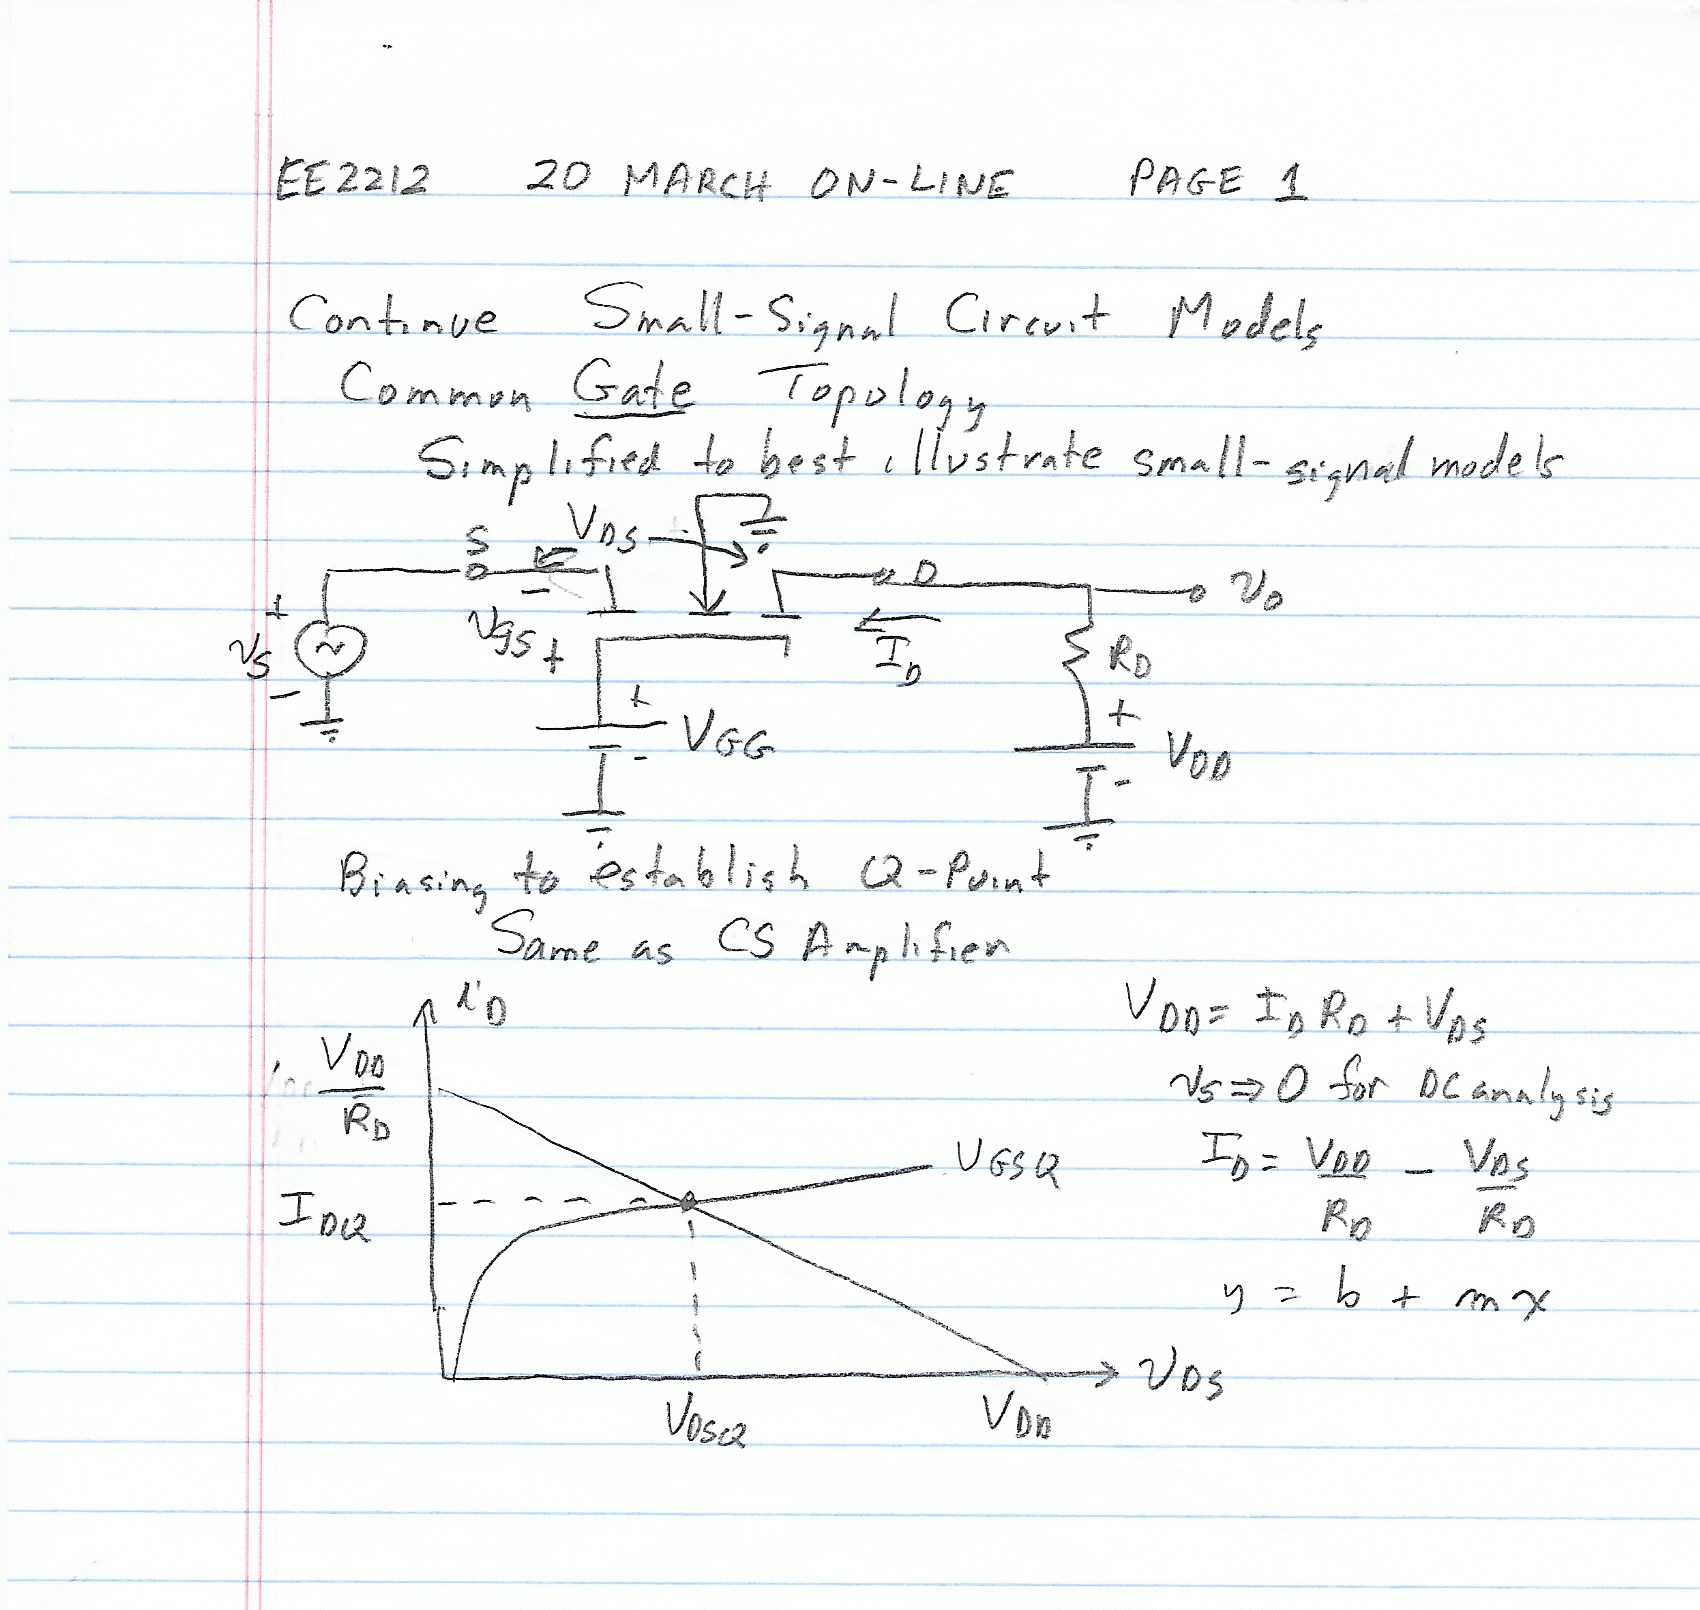 EE2212 20 MARCH ON-LINE PAGE 1
Continue Small-Signal Circuit Models
Common Gate Topology
Simplified to best illustrate small-signal models
S
VDS
D
vo
+
vs
-
-
vgs
+
ID
RD
+
VGG
-
+
VDD
-
Biasing to establish Q-Point
Same as CS Amplifier
iD
VDD
RD
IDQ
VGSQ
vDS
VDSQ
VDD
VDD = ID RD + VDS
vs ⇒ 0 for DC analysis
ID = VDD/RD - VDS/RD
y = b + mx